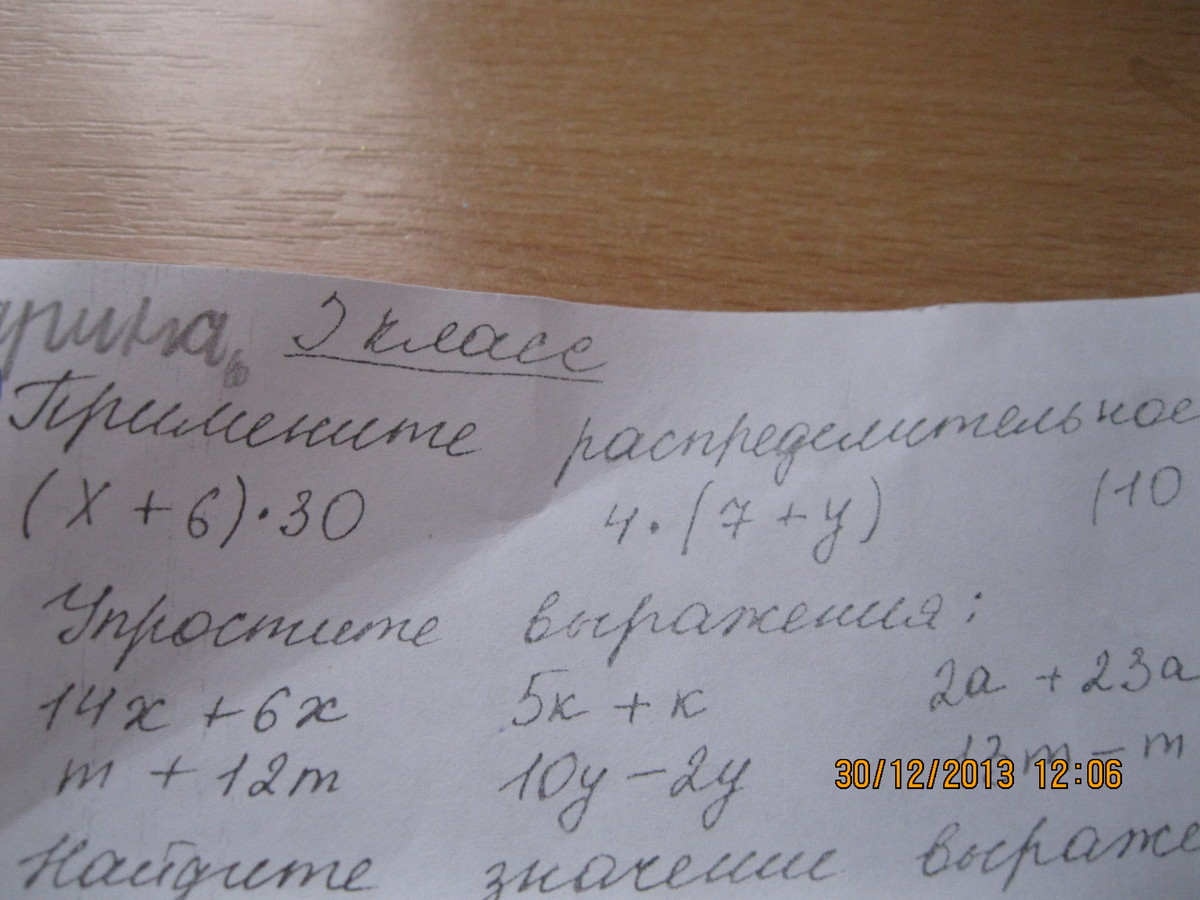 арина, 5 класс
Примените распределительное
(x + 6) · 30 4 · (7 + y) (10
Упростите выражения:
14x + 6x 5к + к 2a + 23a
m + 12m 10y - 2y m - m
30/12/2013 12:06
Найдите значение выраже